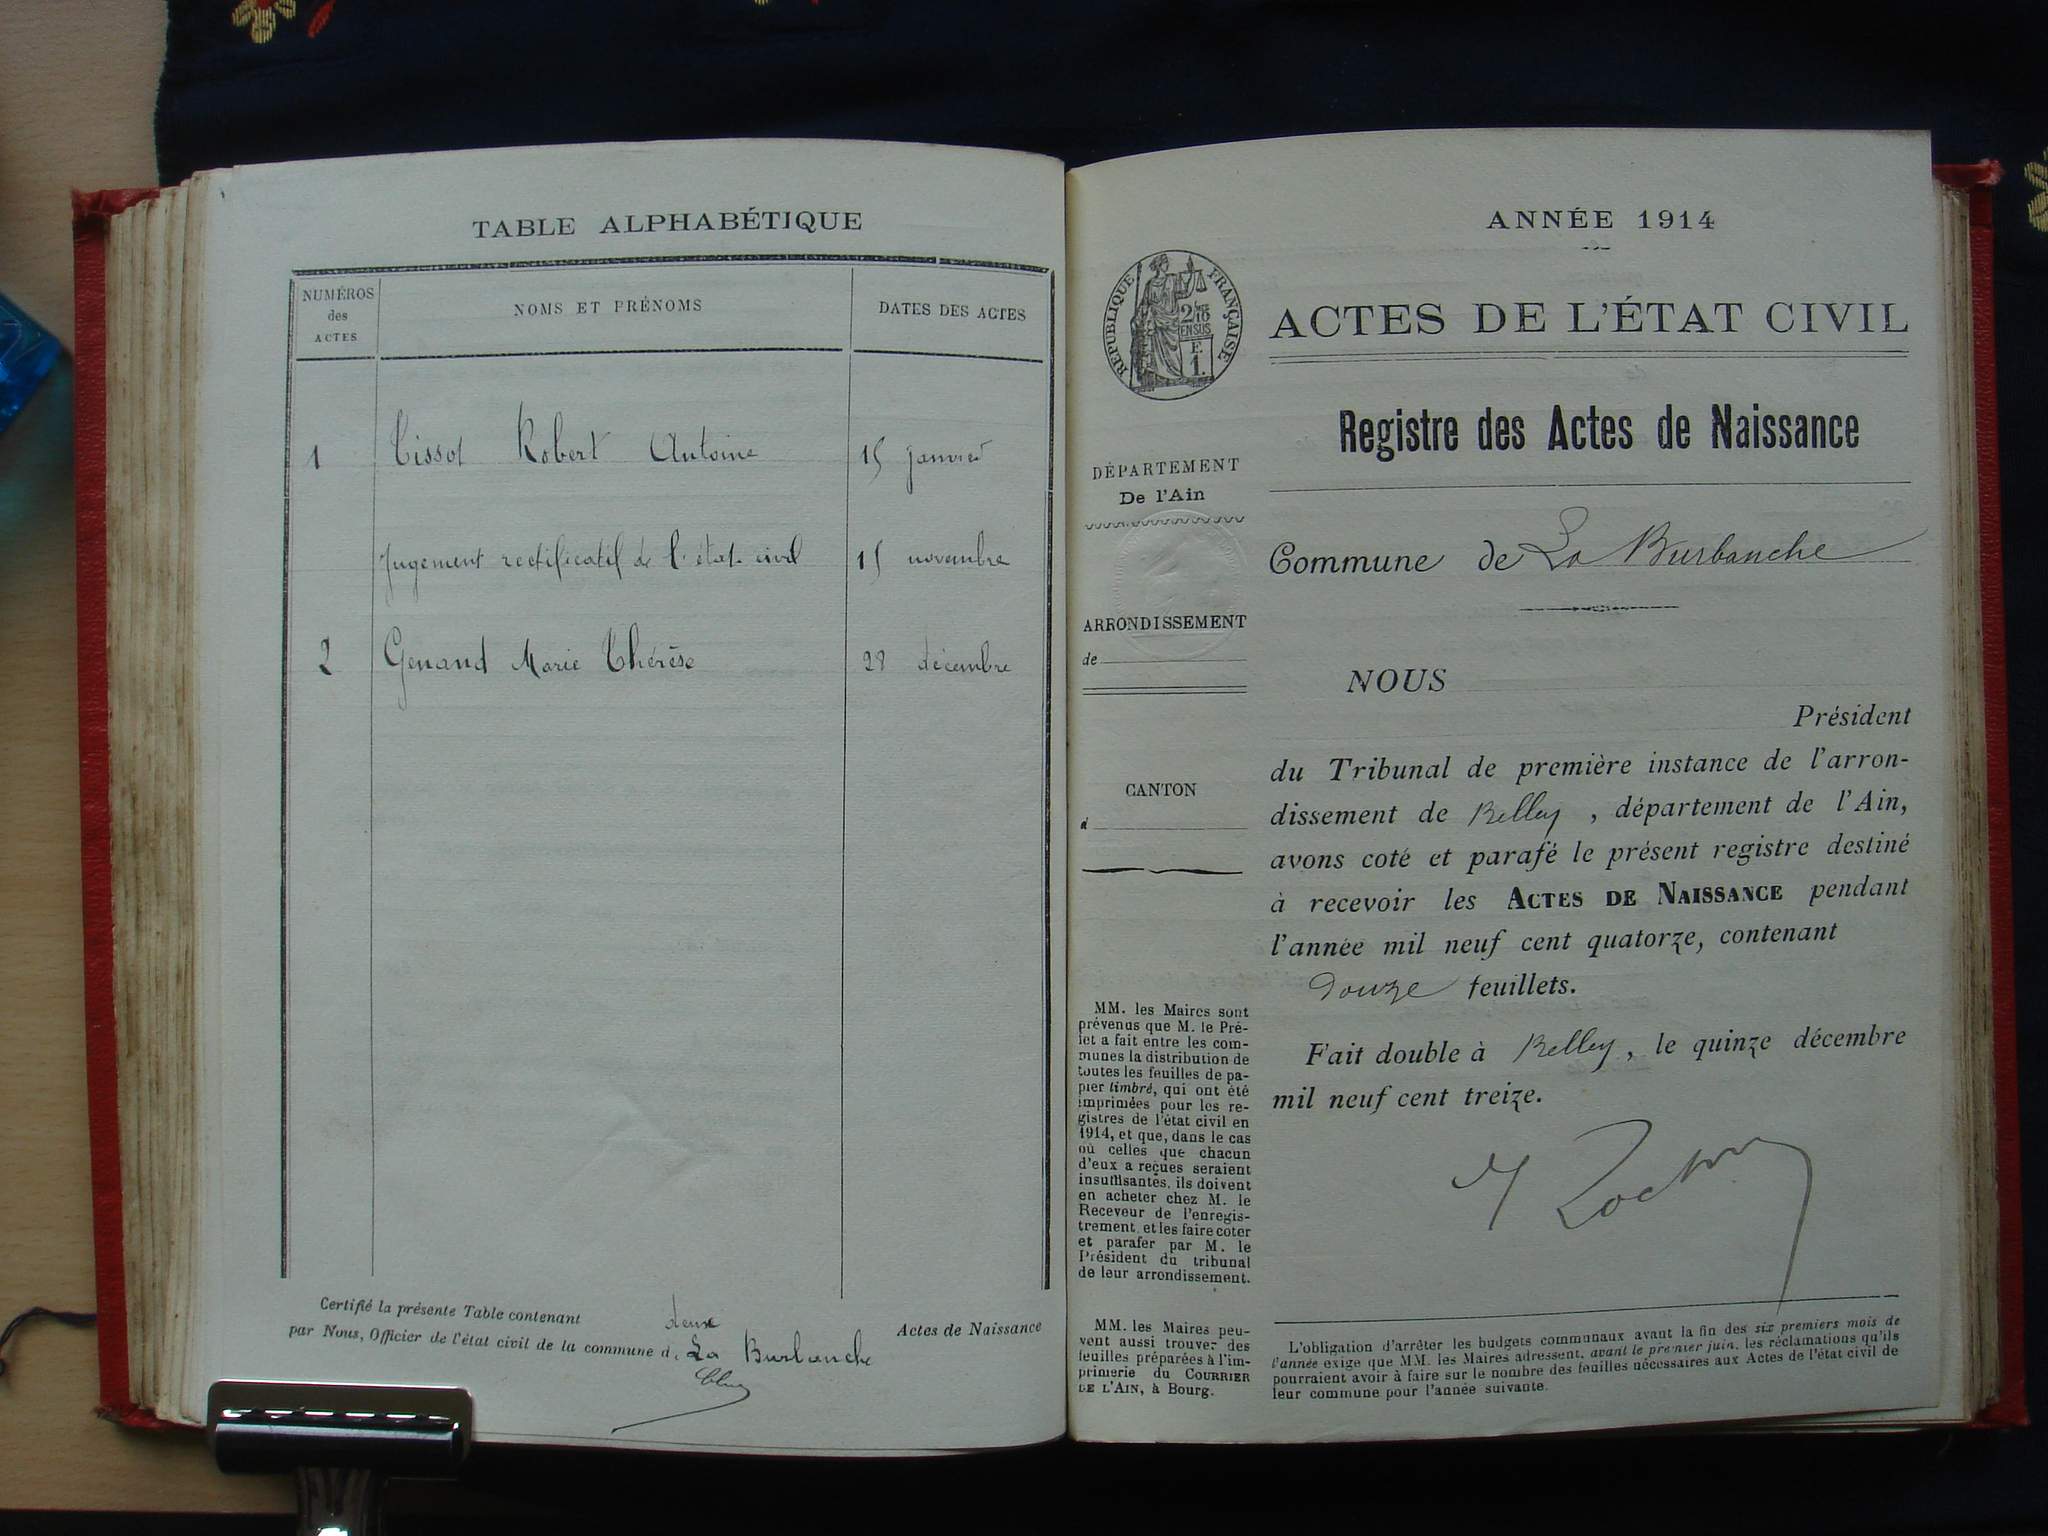 TABLE ALPHABÉTIQUE
NUMÉROS des ACTES
NOMS ET PRÉNOMS
DATES DES ACTES
1 Tissot Robert Antoine 15 janvier
Jugement rectificatif de l'état-civil 15 novembre
2 Genand Marie Thérèse 28 décembre
Certifié la présente Table contenant deux Actes de Naissance
par Nous, Officier de l'état civil de la commune d. La Burbanche
ANNÉE 1914
RÉPUBLIQUE FRANÇAISE
2/10
EN SUS
F.
1.
ACTES DE L'ÉTAT CIVIL
Registre des Actes de Naissance
DÉPARTEMENT
De l'Ain
Commune de La Burbanche
ARRONDISSEMENT
de
CANTON
d
NOUS
Président
du Tribunal de première instance de l'arron-
dissement de Belley, département de l'Ain,
avons coté et parafé le présent registre destiné
à recevoir les ACTES DE NAISSANCE pendant
l'année mil neuf cent quatorze, contenant
douze feuillets.
Fait double à Belley, le quinze décembre
mil neuf cent treize.
MM. les Maires sont
prévenus que M. le Pré-
fet a fait entre les com-
munes la distribution de
toutes les feuilles de pa-
pier timbré, qui ont été
imprimées pour les re-
gistres de l'état civil en
1914, et que, dans le cas
où celles que chacun
d'eux a reçues seraient
insuffisantes, ils doivent
en acheter chez M. le
Receveur de l'enregis-
trement, et les faire coter
et parafer par M. le
Président du tribunal
de leur arrondissement.
MM. les Maires peu-
vent aussi trouver des
feuilles préparées à l'im-
primerie du COURRIER
DE L'AIN, à Bourg.
L'obligation d'arrêter les budgets communaux avant la fin des six premiers mois de
l'année exige que MM. les Maires adressent, avant le premier juin, les réclamations qu'ils
pourraient avoir à faire sur le nombre des feuilles nécessaires aux Actes de l'état civil de
leur commune pour l'année suivante.